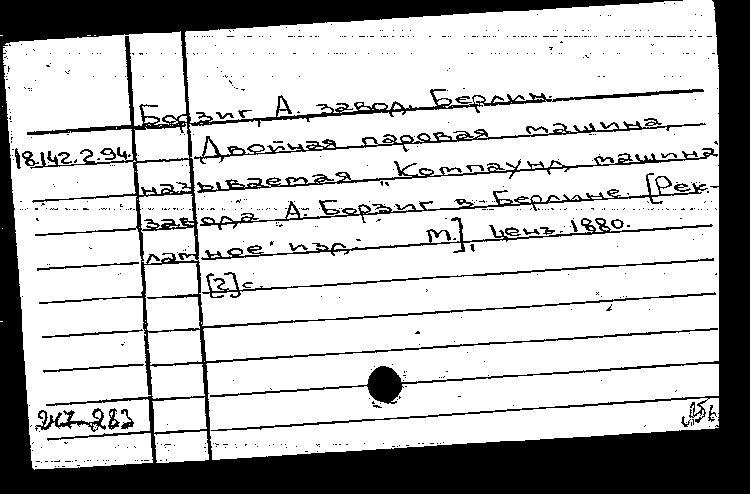 Борзиг, А. завод. Берлин.
18.142.2.94. Двойная паровая машина,
называемая „Компаунд машина"
завода А. Борзиг в Берлине. [Рек-
ламное изд. М.], ценз. 1880.
[2] с.
247-283